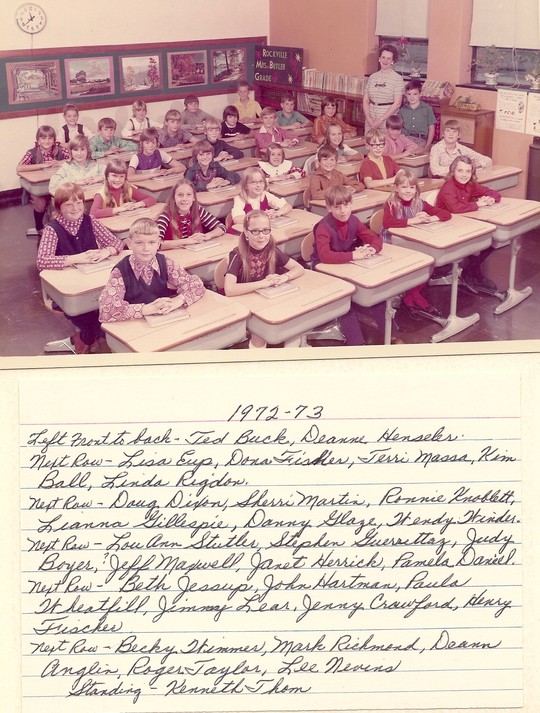 ROCKVILLE
MRS. BUTLER
GRADE
1972-73
Left Front to back - Ted Buck, Deanne Henseler.
Next Row - Lisa Eup, Dona Fischer, Terri Massa, Kim
Ball, Linda Rigdon.
Next Row - Doug Dixon, Sherri Martin, Ronnie Knoblett,
Leanna Gillespie, Danny Glaze, Wendy Winder.
Next Row - Lou Ann Stutler, Stephen Guerrettaz, Judy
Boyer, ? Jeff Maxwell, Janet Herrick, Pamela Daniel.
Next Row - Beth Jessup, John Hartman, Paula
Wheatfill, Jimmy Lear, Jenny Crawford, Henry
Fischer
Next Row - Becky Wimmer, Mark Richmond, Deann
Anglin, Roger Taylor, Lee Nevins
Standing - Kenneth Thom